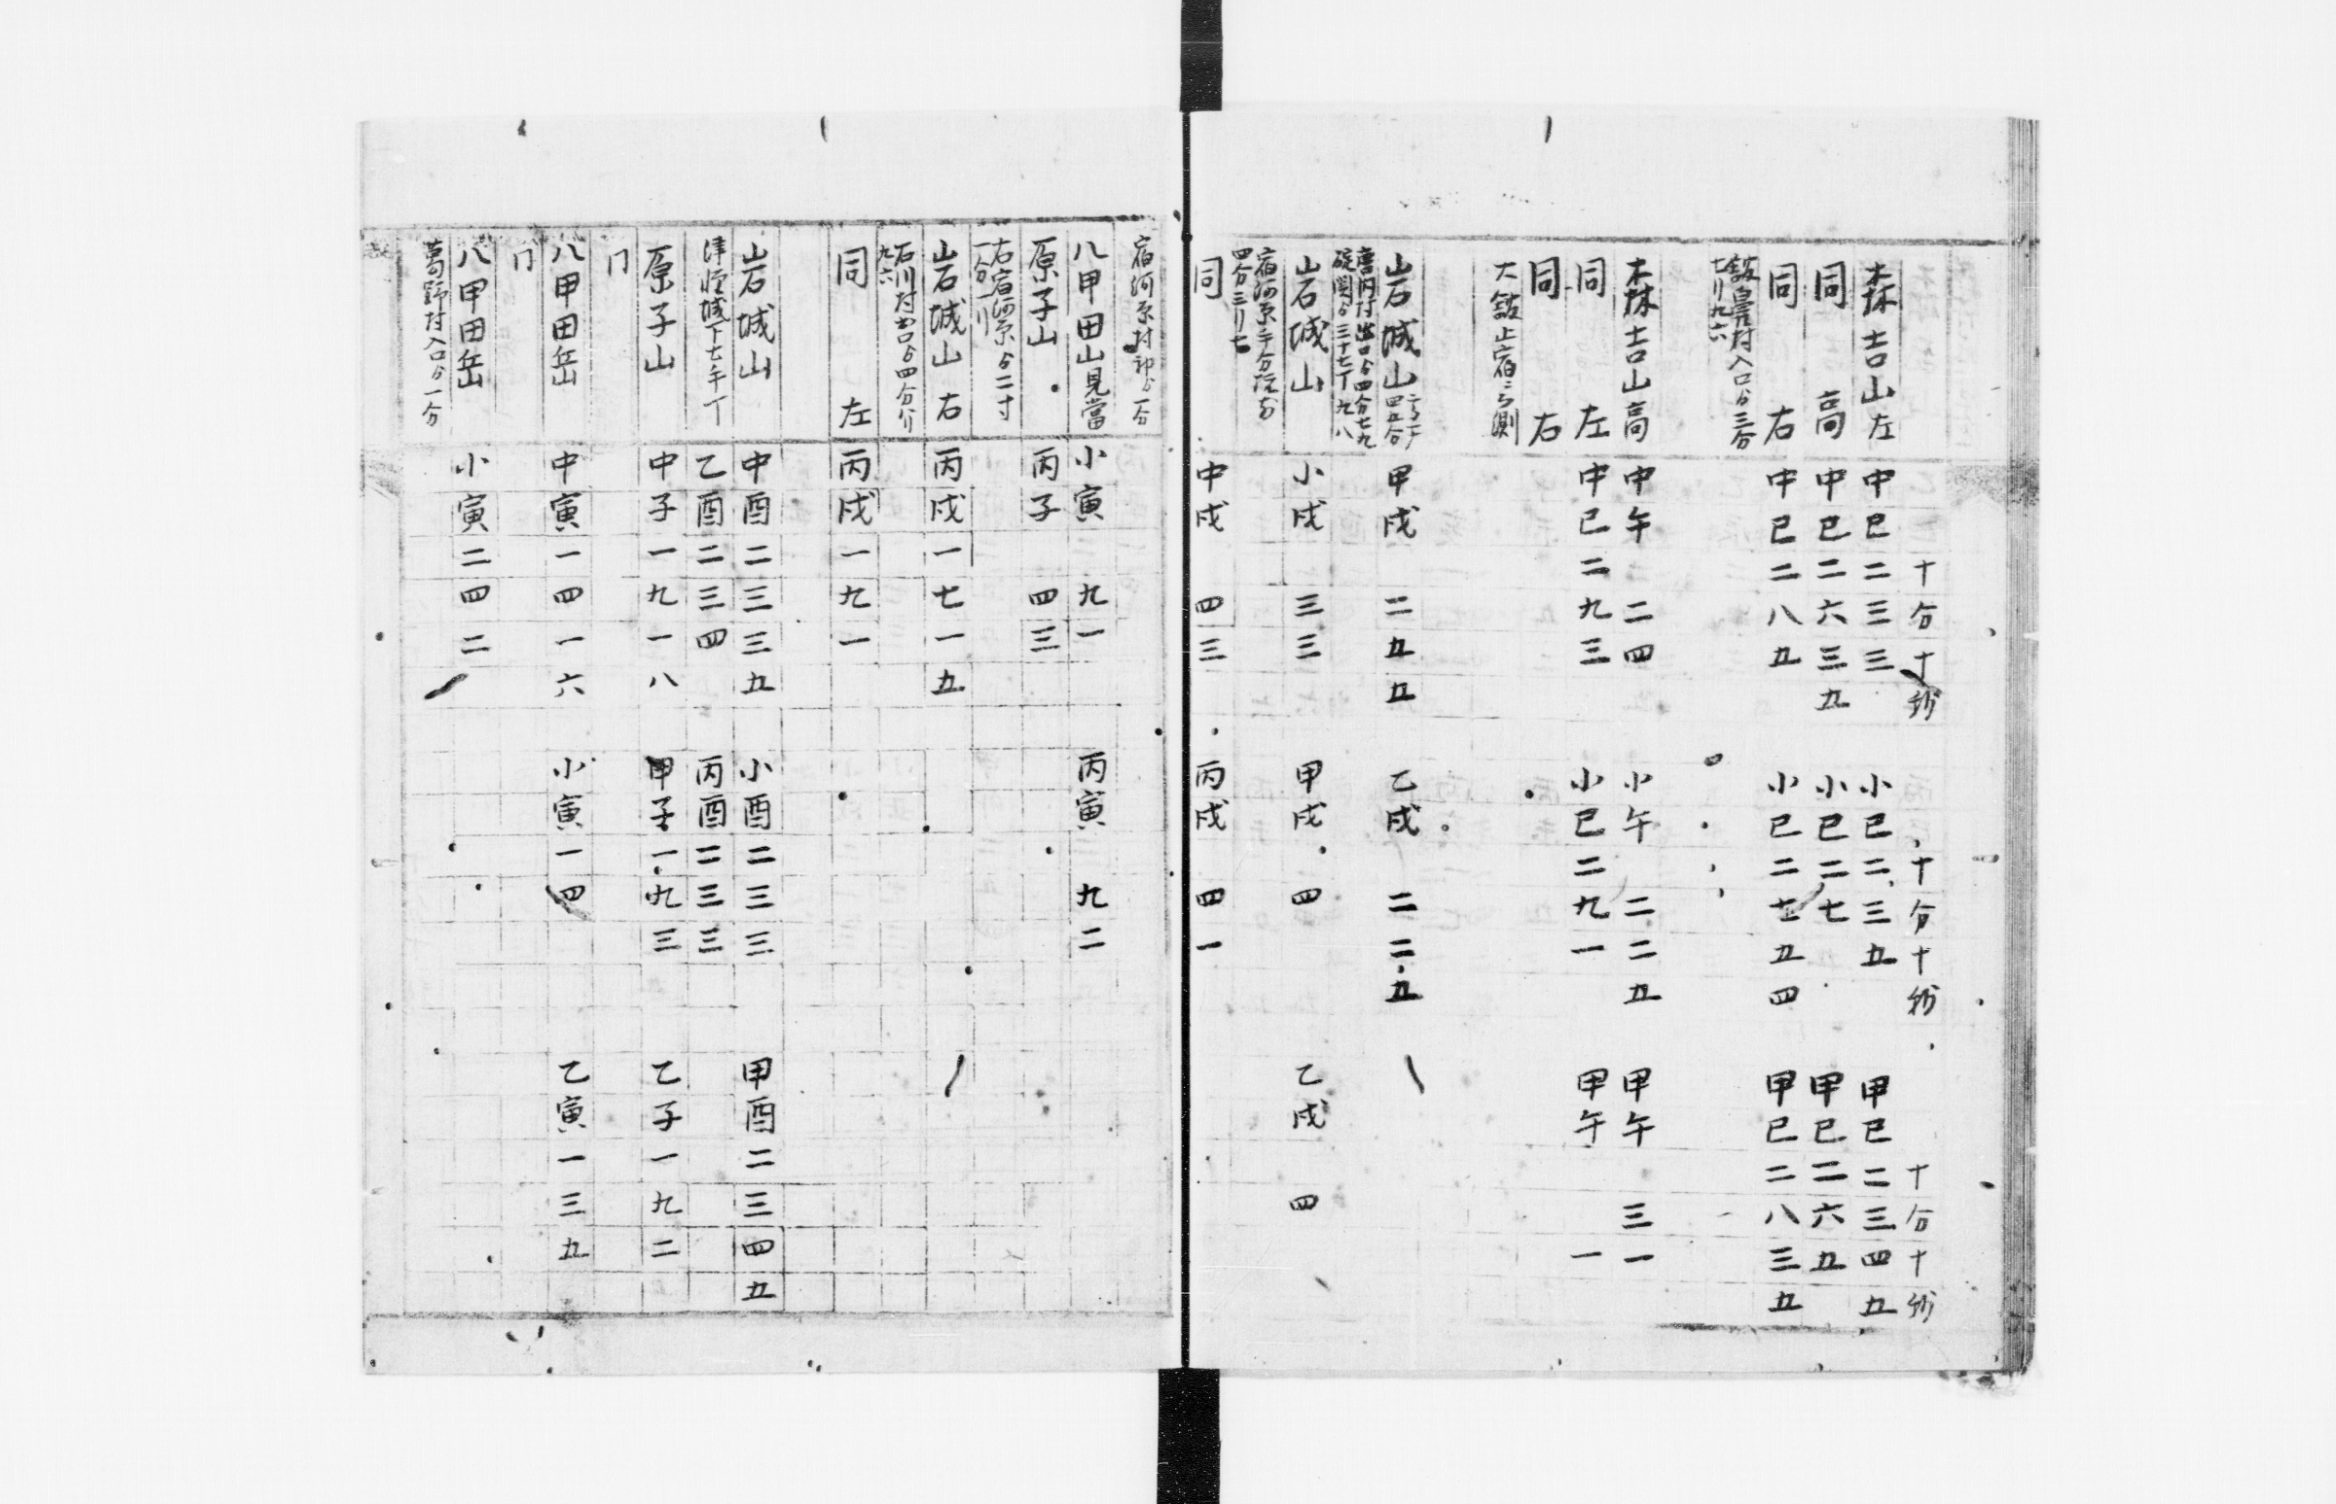 十分十秒 十分十秒 十分十秒
森吉山左 中巳二三三 小巳二三五 甲巳二三四五
同 高 中巳二六三五 小巳二七 甲巳二六五
同 右 中巳二八五 小巳二七五四 甲巳二八三五
村入口ゟ三分
七リ九六
森吉山高 中午二四 小午二二五 甲午三一
同 左 中巳二九三 小巳二九一 甲午一
同 右
大舘止宿ニ而測
岩城山 甲戌二五五 乙戌二二五
碇関ゟ三十七丁九八
岩城山 小戌三三 甲戌四 乙戌四
四分三リ七
同 中戌四三 丙戌四一
宿河原村
八甲田山見當 小寅九一 丙寅九二
原子山 丙子四三
右宿河原ゟ二寸
一分一リ
岩城山右 丙戌一七一五
石川村 ゟ四分八リ
九六
同 左 丙戌一九一
岩城山 中酉二三三五 小酉二三三 甲酉二三四五
津軽城下 乙酉二三四 丙酉二三三
原子山 中子一九一八 甲子一九三 乙子一九二
八甲田岳 中寅一四一六 小寅一四 乙寅一三五
八甲田岳 小寅二四二
葛野村入口ゟ一分